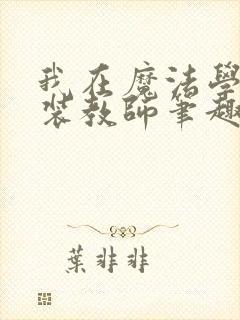 我在魔法學
裝教師筆趣
葉非非